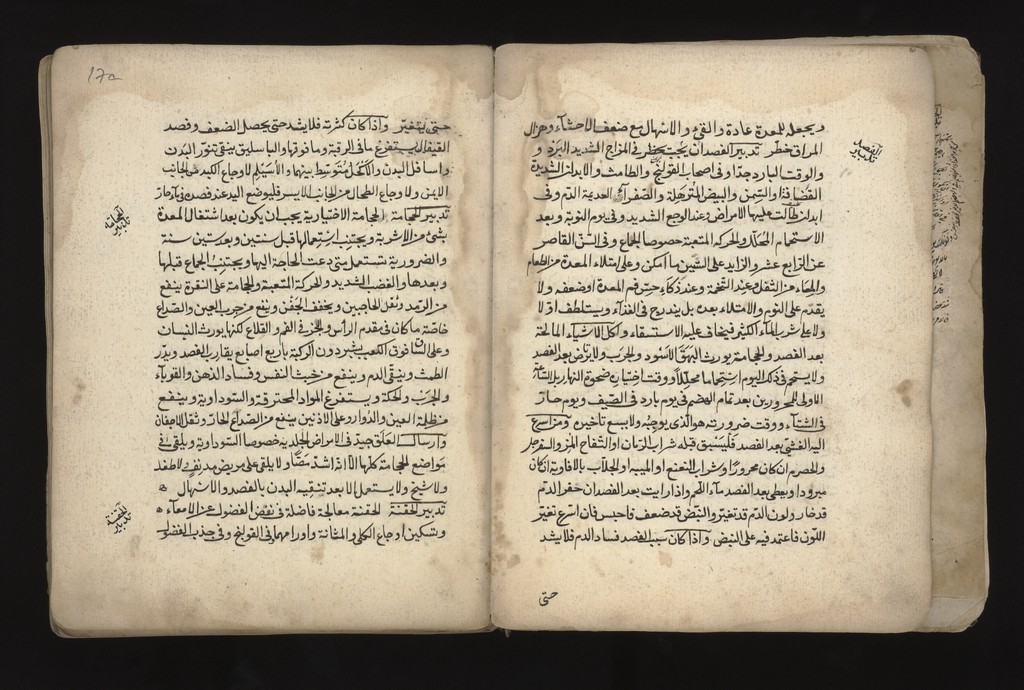 ويجعله للمعدة عادة والقيء والاسهال مع ضعف الاحشاء وهزال
المراق خطر تدبير الفصد ان يجب يحظر في المزاج الشديد البرد و
والوقت البارد جدا وفي اصحاب القولنج والطامث والابدان الشديدة
القضافة والسمن والبيض المترهلة والصفر العديمة الدم وفي
ابدان طالت عليها الامراض وعند الوجع الشديد وفي يوم النوبة وبعد
الاستحمام المحلل والحركة المتعبة خصوصا الجماع وفي السن القاصر
عن الرابع عشر والزايد على الستين ما امكن وعلى امتلاء المعدة من الطعام
والمعاء من الثفل وعند التخمة وعند ذكاء حس فم المعدة او ضعفه ولا
يقدم على النوم والامتلاء بعده بل يتدرج في الغذاء ويستلطف اولا
ولا على شرب الماء الكثير فيخاف عليه الاستسقاء واكل الاشياء المالحة
بعد الفصد والحجامة يورث البهق الاسود والجرب ولا يرتض بعد الفصد
ولا يستحم في ذلك اليوم استحماما محللا ووقت اختياره ضحوة النهار
الاولى للمحرورين بعد تمام الهضم في يوم بارد في الصيف ويوم حار
في الشتاء ووقت ضرورته هو الذي يوجبه ولا يسع تاخيره ومن اسرع
اليه الغشي بعد الفصد فليسبق قبله شراب الرمان او التفاح المز والسفرجل
والحصرم ان كان محرورا وشراب النعنع او الميبه او الجلاب بالافاويه ان كان
مبرودا ويعطى بعد الفصد ماء اللحم واذا رايت بعد الفصد ان حفز الدم
قد خار ولون الدم قد تغير والنبض قد ضعف فاحبس فان اسرع تغير
اللون فاعتمد فيه على النبض واذا كان سبب الفصد فساد الدم فلا يشد
حتى
تدبير الفصد
حتى يتغير واذا كان كثرته فلا يشد حتى يحصل الضعف وفصد
القيفال يستفرغ ما في الرقبة وما فوقها والباسليق ينقي تنور البدن
واسافل البدن والاكحل متوسط بينهما والاسيلم لاوجاع الكبد من الجانب
الايمن ولاوجاع الطحال من الجانب الايسر فليوضع اليد عند فصده في ماء حار
تدبير الحجامة الحجامة الاختيارية يجب ان يكون بعد اشتغال المعدة
بشيء من الاشربة ويجتنب استعمالها قبل سنتين وبعد ستين سنة
والضرورية تستعمل متى دعت الحاجة اليها ويجتنب الجماع قبلها
وبعدها والغضب الشديد والحركة المتعبة والحجامة على النقرة ينفع
من الرمد وثقل الحاجبين ويخفف الجفن وينفع من جرب العين والصداع
خاصة ما كان في مقدم الرأس والبخر في الفم والقلاع لكنها يورث النسيان
وعلى الساق فوق الكعب بشبر دون الركبة باربع اصابع يقارب الفصد ويدر
الطمث وينقي الدم وينفع من خبث النفس وفساد الذهن والقوباء
والجرب والحكة ويستفرغ المواد المحترقة والسوداوية وينفع
من ظلمة العين والدوار وعلى الاذنين ينفع من الصداع الحار وثقل الاجفان
وارسال العلق جيد في الامراض الجلدية خصوصا السوداوية ويلقى في
مواضع الحجامة كلها الا انه اشد مصا ولا يلقى على مريض مدنف ولا طفل
ولا شيخ ولا يستعمل الا بعد تنقية البدن بالفصد والاسهال
تدبير الحقنة الحقنة معالجة فاضلة في نفض الفضول عن الامعاء
وتسكين اوجاع الكلى والمثانة واورامهما وفي القولنج وفي جذب الفضول
تدبير الحجامة
تدبير الحقنة
17a